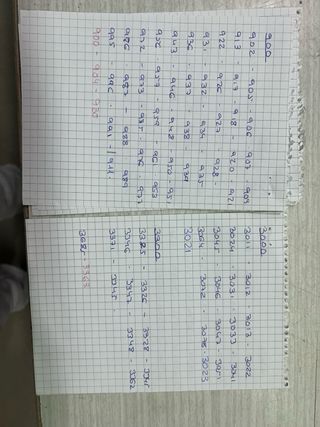 900
902 . 905 - 906 . 907 . 909
913 . 917 - 918 . 920 . 921
922 . 926 . 927 . 928 .
931 . 932 . 934 . 935
936 . 937 . 938 . 939
943 . 946 . 948 . 950 . 951
956 . 957 . 959 . 963
972 - 973 - 975 . 976 . 977
986 . 987 - 988 . 989
995 - 996 . 991 - / 911 .
900 - 904 -
3000
3011 . 3012 . 3013 . 3022
3024 . 3031 . 3033 . 3041
3045 . 3046 . 3047 . 3051
3064 . 3072 - 3078 . 3023
3021
3300
3325 - 3326 - 3328 -
3346 . 3347 - 3348 - 3362
3371 . 3345
3363